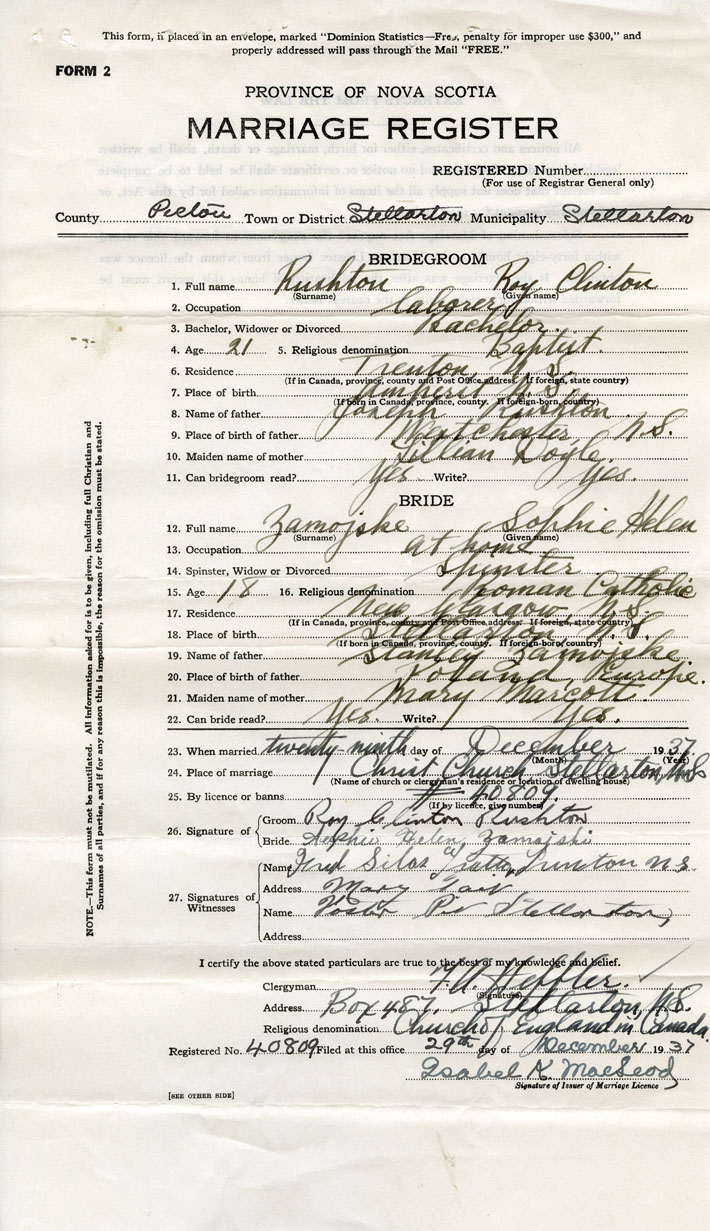 This form, if placed in an envelope, marked "Dominion Statistics—Free, penalty for improper use $300," and
properly addressed will pass through the Mail "FREE."
FORM 2
PROVINCE OF NOVA SCOTIA
MARRIAGE REGISTER
REGISTERED Number
(For use of Registrar General only)
County Pictou Town or District Stellarton Municipality Stellarton
BRIDEGROOM
1. Full name Rushton Roy Clinton
(Surname) (Given name)
2. Occupation laborer
3. Bachelor, Widower or Divorced Bachelor.
4. Age 21 5. Religious denomination Baptist.
6. Residence Trenton, N.S.
(If in Canada, province, county and Post Office address. If foreign, state country)
7. Place of birth Amherst N.S.
(If born in Canada, province, county. If foreign-born, country)
8. Name of father Joseph Rushton
9. Place of birth of father Westchester N.S.
10. Maiden name of mother Lillian Doyle.
11. Can bridegroom read? Yes Write? Yes.
BRIDE
12. Full name Zamojske Sophie Helen
(Surname) (Given name)
13. Occupation at home
14. Spinster, Widow or Divorced Spinster
15. Age 18 16. Religious denomination Roman Catholic
17. Residence New Glasgow, N.S.
(If in Canada, province, county and Post Office address. If foreign, state country)
18. Place of birth Stellarton N.S.
(If born in Canada, province, county. If foreign-born, country)
19. Name of father Stanley Zamojske.
20. Place of birth of father Poland, Europe.
21. Maiden name of mother Mary Margott.
22. Can bride read? Yes. Write? Yes.
23. When married twenty-ninth day of December 1937.
(Month) (Year)
24. Place of marriage Christ Church Stellarton, N.S
(Name of church or clergyman's residence or location of dwelling house)
25. By licence or banns # 40809.
(If by licence, give number)
26. Signature of
Groom Roy Clinton Rushton
Bride Sophie Helen Zamojski
27. Signatures of Witnesses
Name Fred Silas Trenton N.S.
Address Mary
Name Stellarton
Address
I certify the above stated particulars are true to the best of my knowledge and belief.
Clergyman
(Signature)
Address Box 487. Stellarton, N.S.
Religious denomination Church of England in Canada.
Registered No. 40809 Filed at this office 29th day of December 1937
Isabel K. MacLeod
Signature of Issuer of Marriage Licence
[SEE OTHER SIDE]
NOTE.—This form must not be mutilated. All information asked for is to be given, including full Christian and
Surnames of all parties, and if for any reason this is impossible, the reason for the omission must be stated.